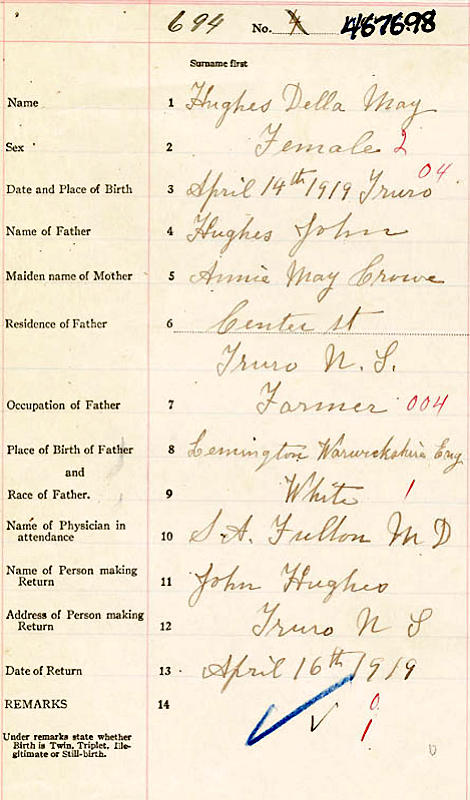 694 No. 4 467698
Surname first
Name 1 Hughes Della May
Sex 2 Female 2
04
Date and Place of Birth 3 April 14th 1919 Truro
Name of Father 4 Hughes John
Maiden name of Mother 5 Annie May Crowe
Residence of Father 6 Center st
Truro N. S.
Occupation of Father 7 Farmer 004
Place of Birth of Father 8 Lemington Warwickshire Eng
and
Race of Father. 9 White 1
Name of Physician in
attendance 10 S. A. Fulton M D
Name of Person making
Return 11 John Hughes
Address of Person making
Return 12 Truro N S
Date of Return 13 April 16th 1919
REMARKS 14 0
1
Under remarks state whether
Birth is Twin, Triplet, Ille-
gitimate or Still-birth.